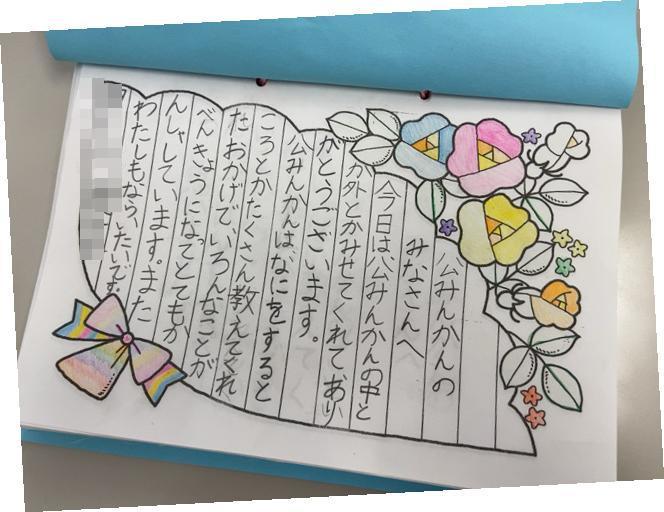 公みんかんの
みなさんへ
今日は公みんかんの中と
か外とかみせてくれてあり
がとうございます。
公みんかんはなにをすると
ころとかたくさん教えてくれ
たおかげで、いろんなことが
べんきょうになってとてもか
んしゃしています。また
わたしもならいたいです。